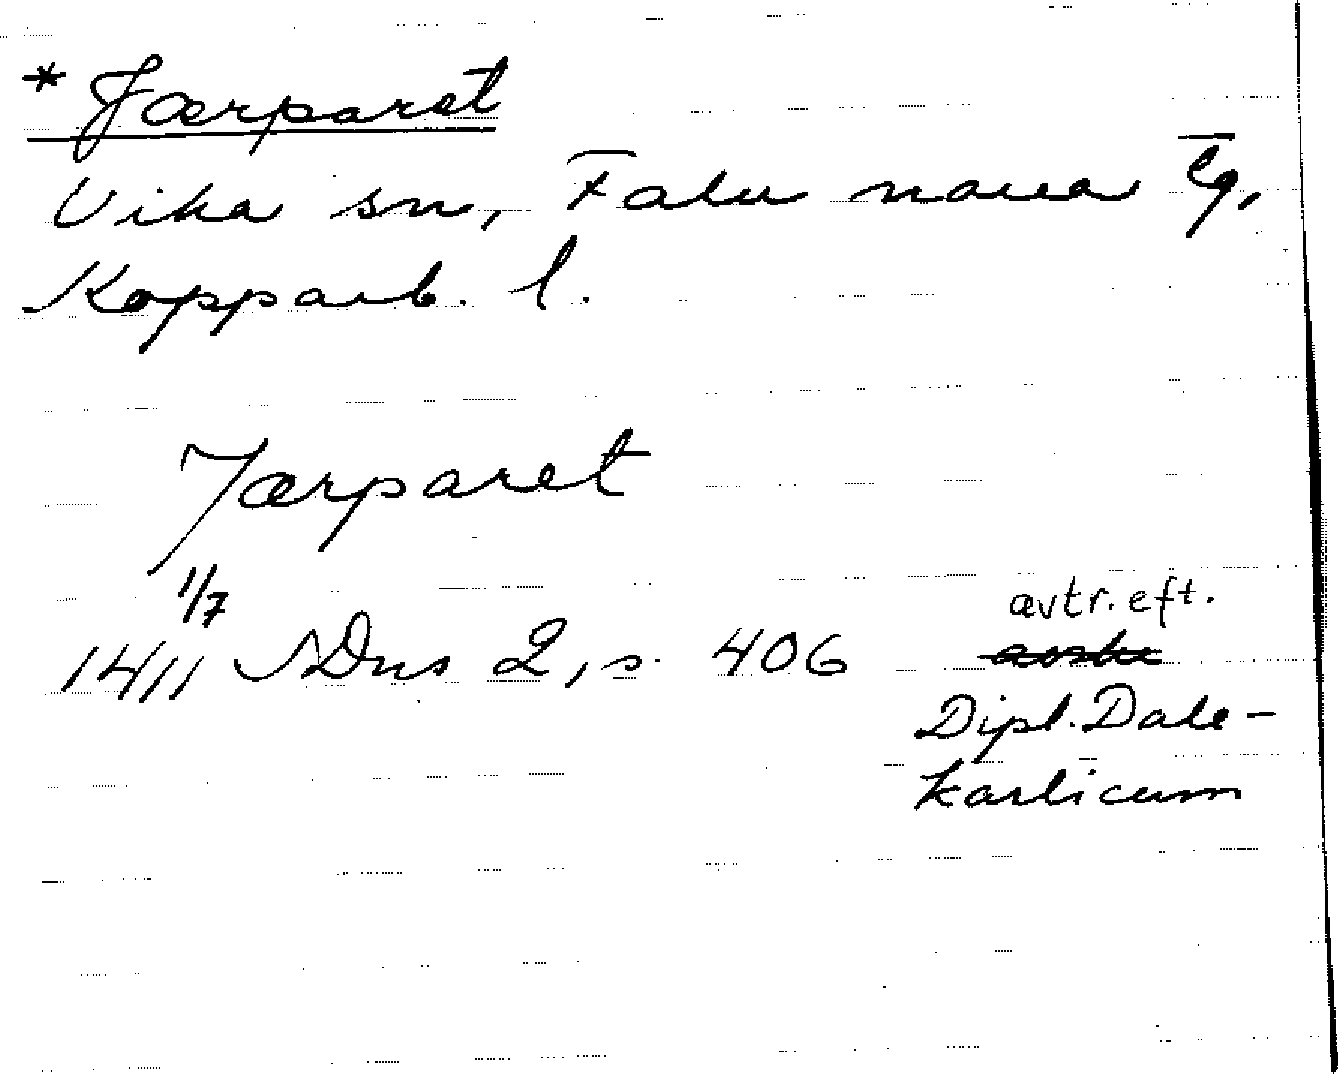 * Jærparet
Vika sn, Falu norra tg,
Kopparb. l.
Jærparet
1/7
1411 SDns 2, s. 406
avtr. eft.
Dipl. Dale-
karlicum